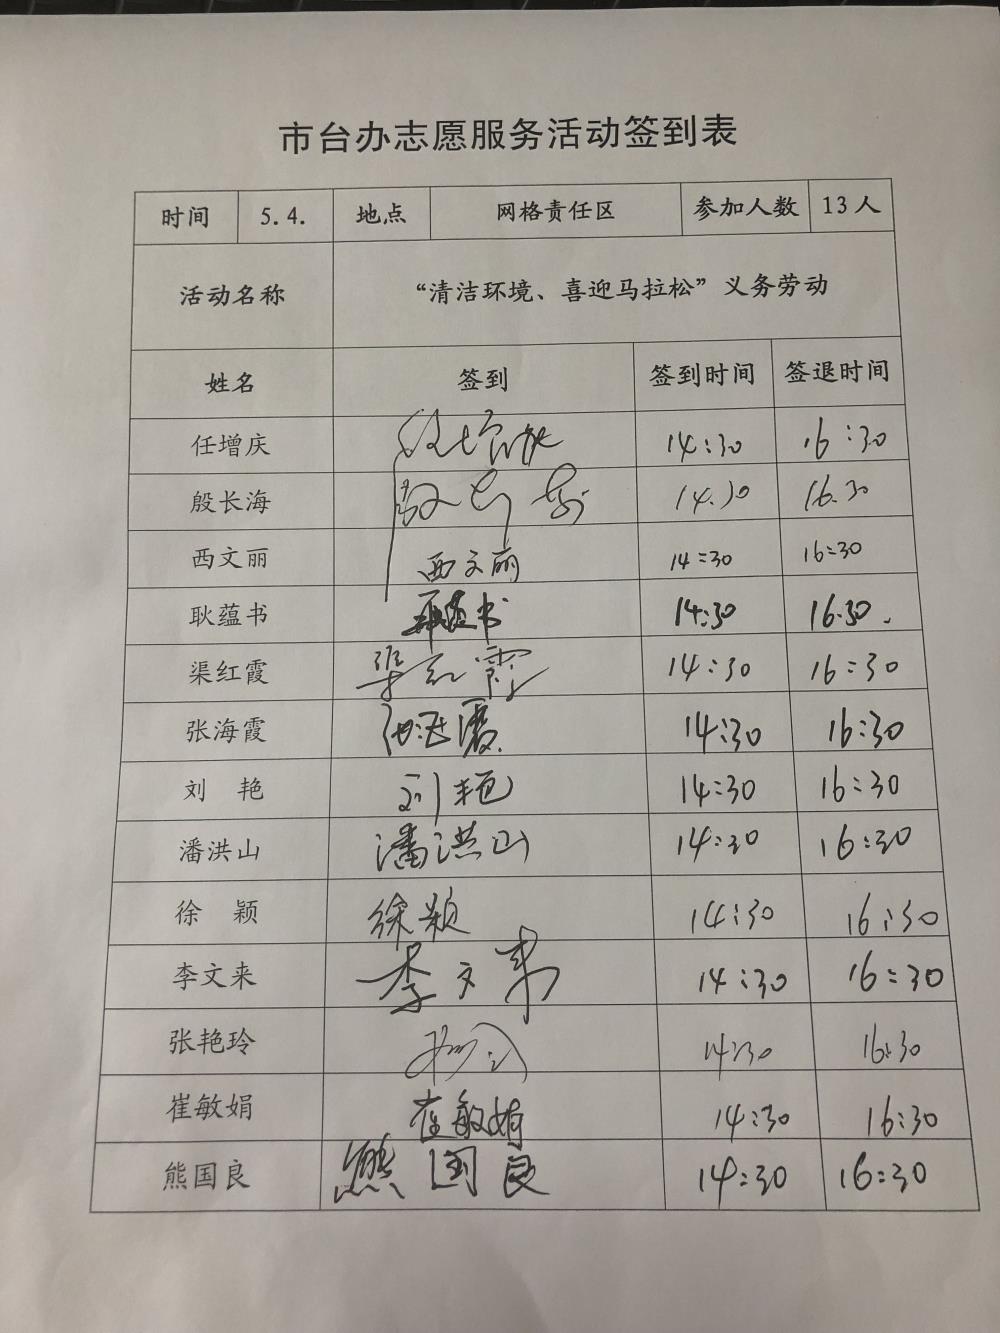 市台办志愿服务活动签到表
时间 5.4. 地点 网格责任区 参加人数 13人
活动名称 “清洁环境、喜迎马拉松”义务劳动
姓名 签到 签到时间 签退时间
任增庆 14:30 16:30
殷长海 14.30 16.30
西文丽 西文丽 14:30 16:30
耿蕴书 耿蕴书 14:30 16:30.
渠红霞 渠红霞 14:30 16:30
张海霞 张海霞 14:30 16:30
刘 艳 刘艳 14:30 16:30
潘洪山 潘洪山 14:30 16:30
徐 颖 徐颖 14:30 16:30
李文来 李文来 14:30 16:30
张艳玲 14:30 16:30
崔敏娟 崔敏娟 14:30 16:30
熊国良 熊国良 14:30 16:30